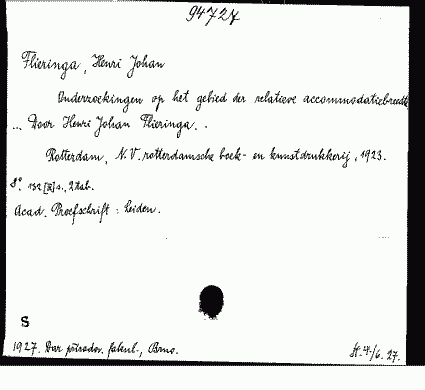 94727
Flieringa, Henri Johan
Onderzoekingen op het gebied der relatieve accommodatiebreedte
... Door Henri Johan Flieringa. .
Rotterdam, N. V. rotterdamsche boek- en kunstdrukkerij, 1923.
8°. 132 [III] s., 2 tab.
Acad. Proefschrift : Leiden.
S
1927. Dar přírodov. fakul., Brno.
4/6. 27.